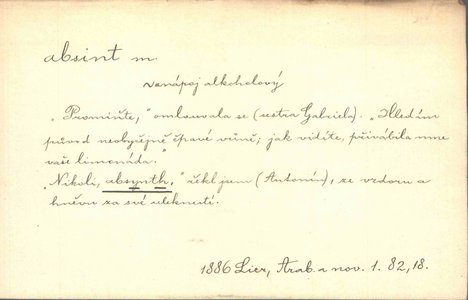 absint m.
nápoj alkoholový
„Promiňte," omlouvala se (sestra Gabriela). „Hledám
původ neobyčejně čpavé vůně; jak vidíte, přivábila mne
vaše limonáda.
„Nikoli, absynth," řekl jsem (Antonín), ze vzdoru a
hněvu za své uleknutí.
1886 Lier, Arab. a nov. 1. 82, 18.